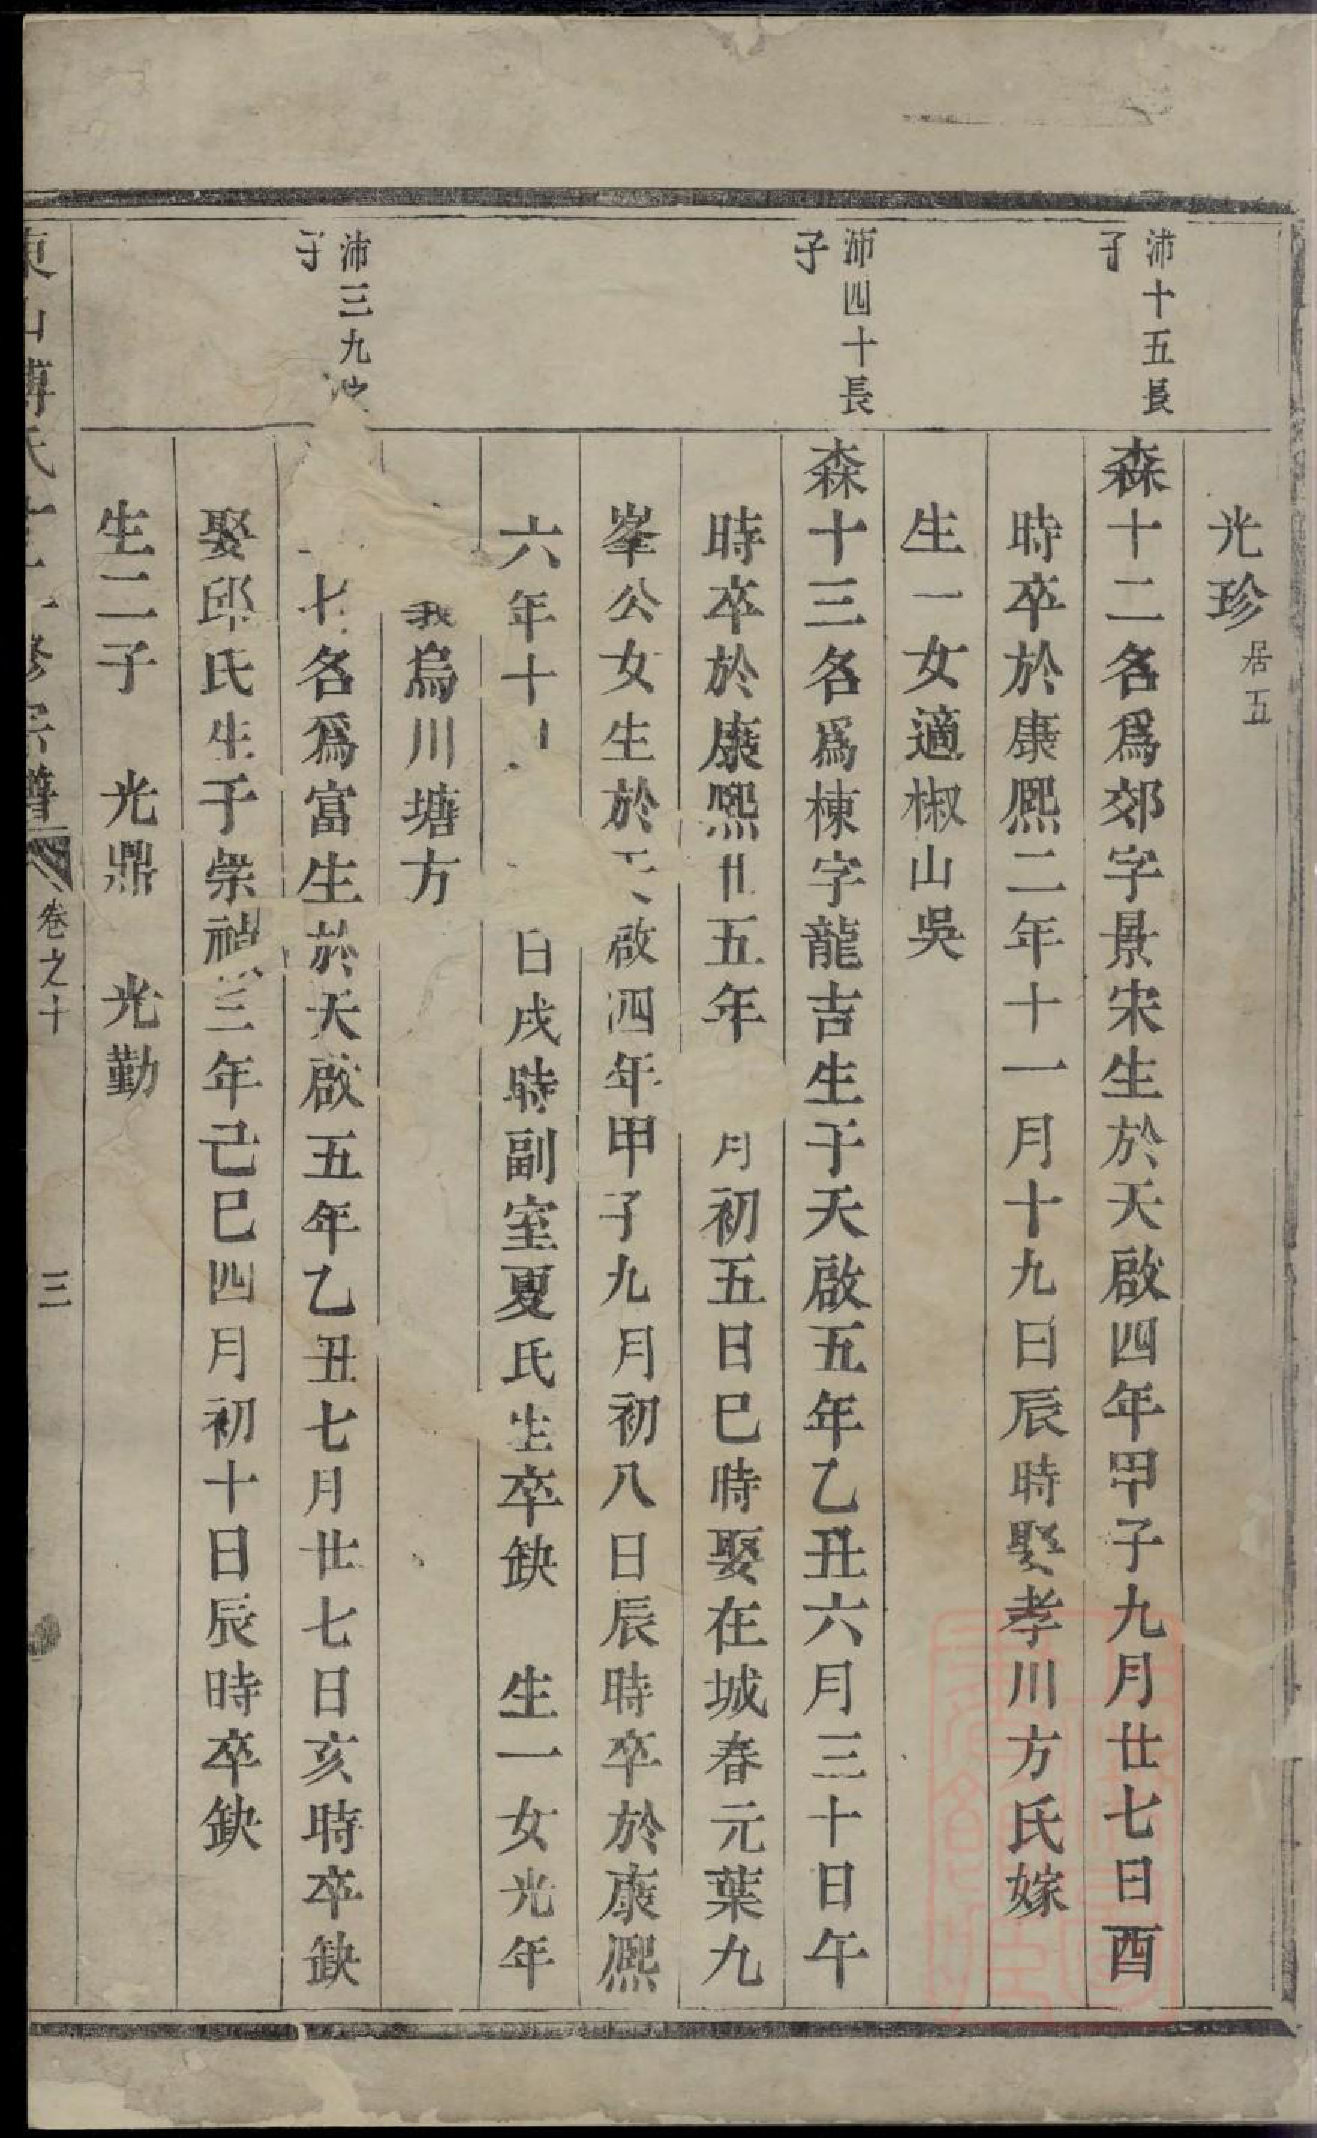 光珍居五
沛十五長
子
森十二名爲郊字景宋生於天啟四年甲子九月廿七日酉
時卒於康熙二年十一月十九日辰時娶孝川方氏嫁
生一女適椒山吳
沛四十長
子
森十三名爲棟字龍吉生于天啟五年乙丑六月三十日午
時卒於康熙廿五年月初五日巳時娶在城春元葉九
峯公女生於天啟四年甲子九月初八日辰時卒於康熙
六年十日戌時副室夏氏生卒缺 生一女光年
烏川塘方
沛三九
子
七名爲富生於天啟五年乙丑七月廿七日亥時卒缺
娶邱氏生于崇禎三年己巳四月初十日辰時卒缺
生二子 光鼎 光勤
卷之十
三